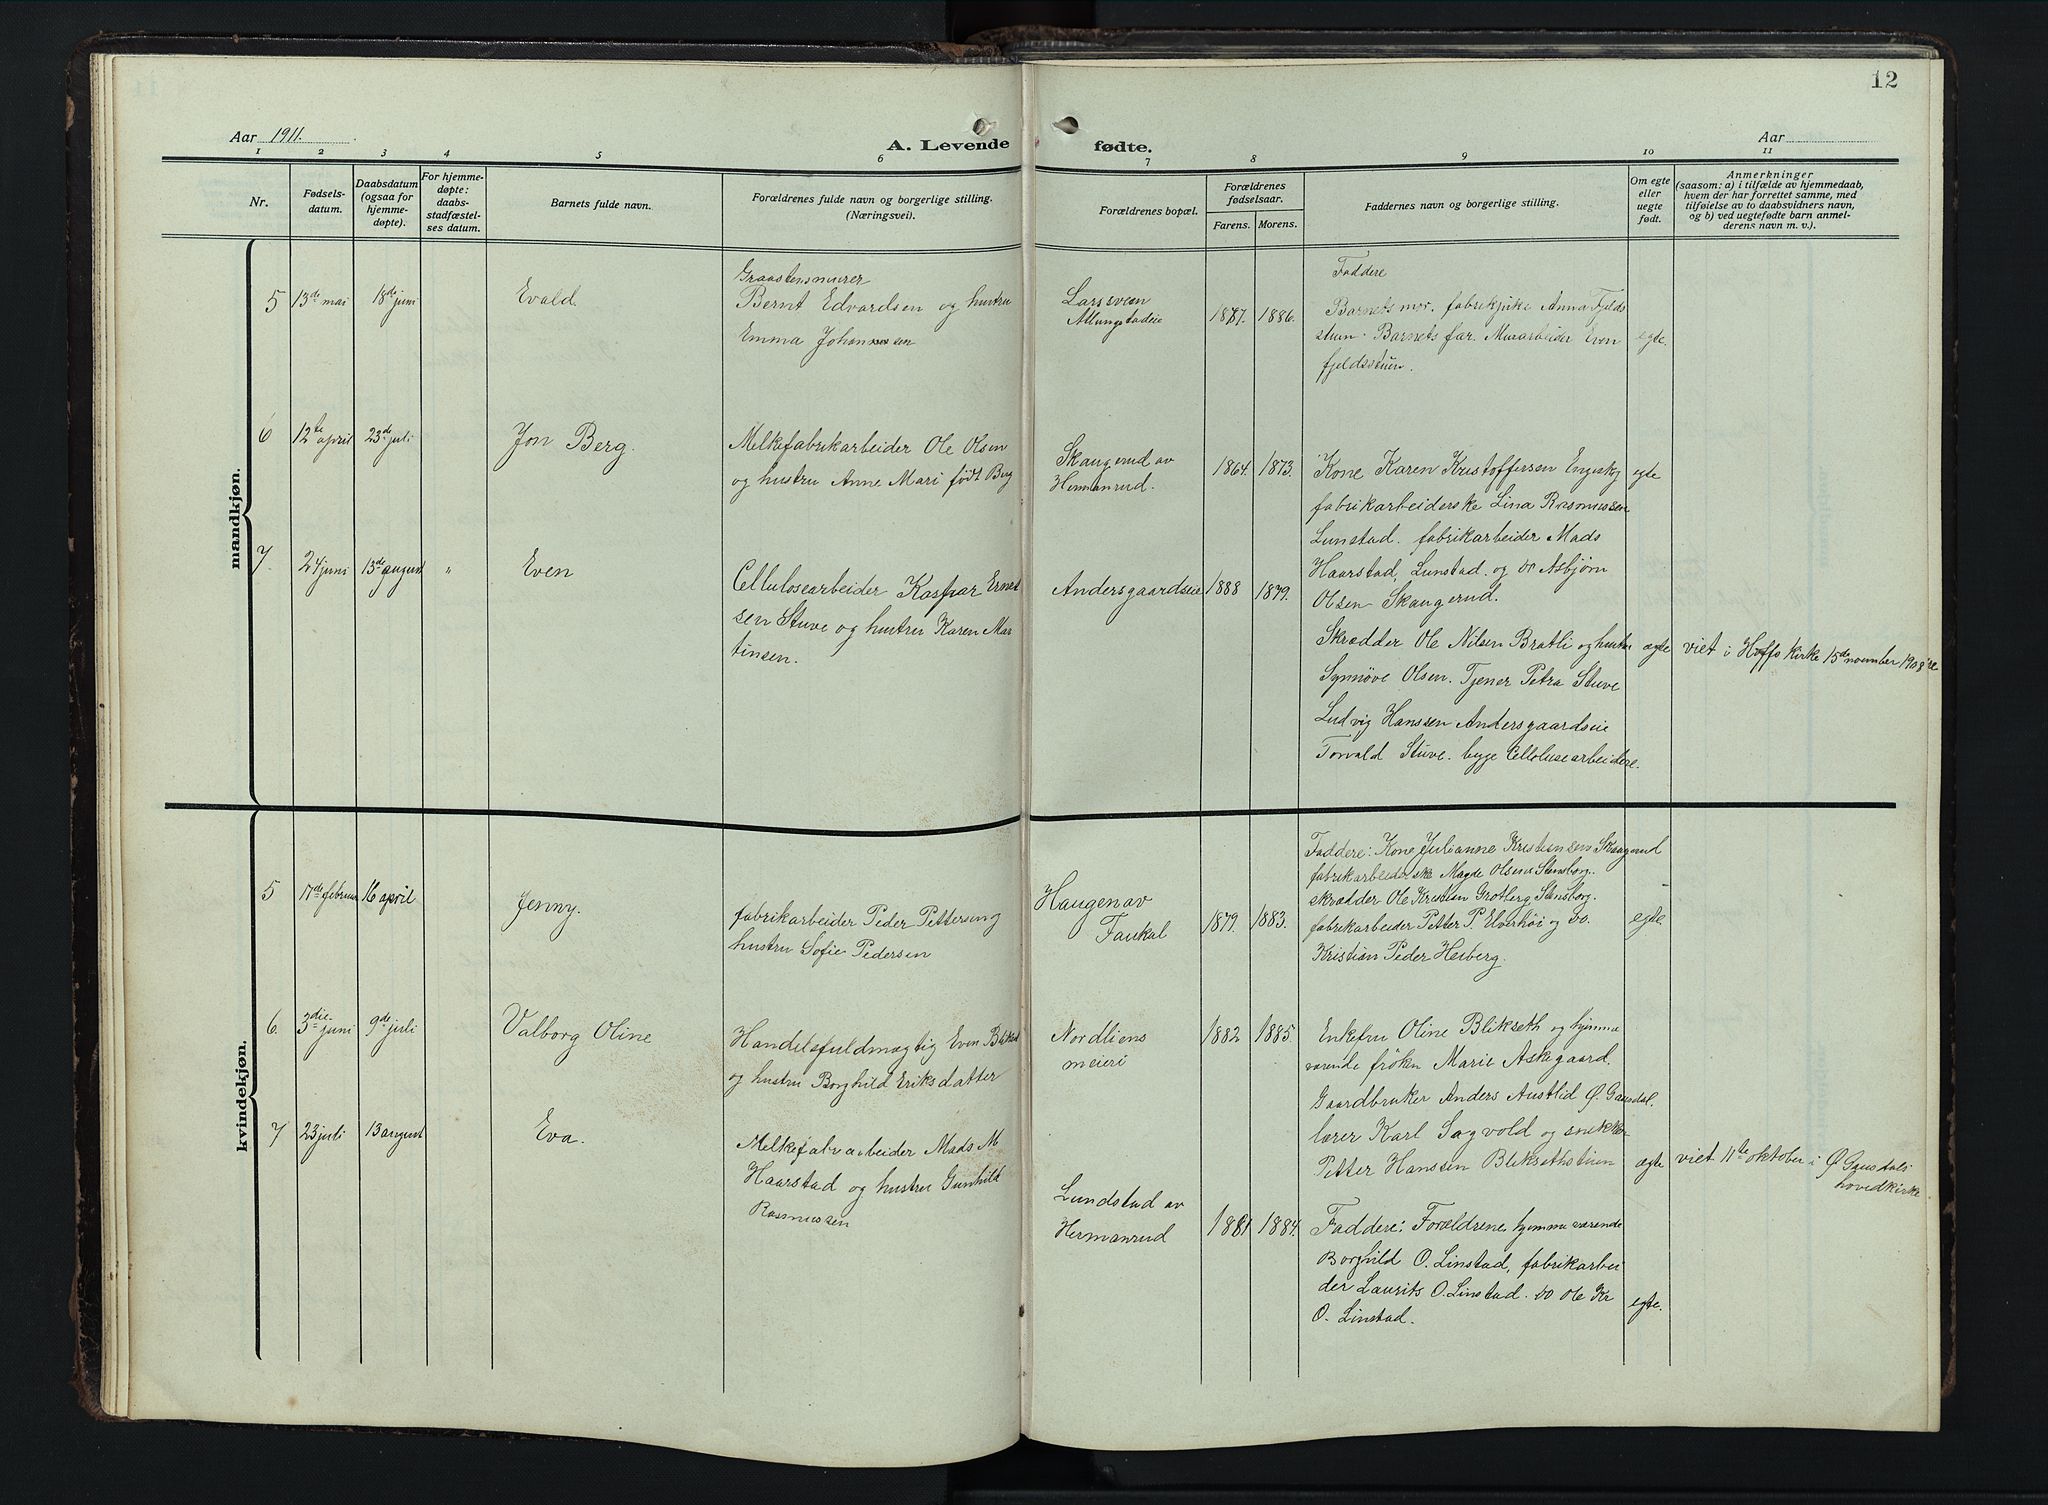 12
Aar 1911.
A. Levende fødte.
Aar
1 2 3 4 5 6 7 8 9 10 11
Nr.
Fødsels-
datum.
Daabsdatum
(ogsaa for
hjemme-
døpte).
For hjemme-
døpte:
daabs-
stadfæstel-
ses datum.
Barnets fulde navn.
Forældrenes fulde navn og borgerlige stilling.
(Næringsvei).
Forældrenes bopæl.
Forældrenes
fødselsaar.
Farens. Morens.
Faddernes navn og borgerlige stilling.
Om egte
eller
uegte
født.
Anmerkninger
(saasom: a) i tilfælde av hjemmedaab,
hvem der har forrettet samme, med
tilføielse av to daabsvidners navn,
og b) ved uegtefødte barn anmel-
derens navn m. v.).
mandkjøn.
5
13de mai
18de juni
Evald
Graastensmurer
Bernt Edvardsen og hustru
Emma Johannessen
Larssveen
Allungstadeie
1887. 1886.
Faddere
Barnets mor. fabrikpike Anna Fjelds
stuen. Barnets far. Murarbeider Even
fjeldsstuen.
egte.
6
12te april
23de juli
Jon Berg.
Melkefabrikarbeider Ole Olsen
og hustru Anne Mari født Berg
Skaugerud av
Hermanrud.
1864 1873.
Kone Karen Kristoffersen Engesky
fabrikarbeiderske Lina Rasmussen
Lunstad. fabrikarbeider Mads
Haarstad, Lunstad. og do Asbjørn
Olsen Skaugerud.
egte
7
24 juni
13de august
"
Even
Cellulosearbeider Kaspar Ernst
sen Stuve og hustru Karen Mar
tinsen.
Andersgaardseie
1888 1879.
Skrædder Ole Nilsen Bratli og hustru
Synnøve Olsen. Tjener Petra Stuve
Ludvig Hanssen Andersgaardseie
Torvald Stuve. begge Celulosearbeidere.
ægte
viet i Hoffs Kirke 15de november 1908
kvindekjøn.
5
17de februar
16 april
Jenny.
fabrikarbeider Peder Petterseng
hustru Sofie Pedersen
Haugen av
Faukal
1879. 1883.
Faddere: Kone Julianne Kristiansen Skaugerud
fabrikarbeiderske Magde Olsen Stensborg.
skrædder Ole Kristian Grotberg Stensborg.
fabrikarbeider Petter P. Elverhøi og do.
Kristian Peder Heiberg.
egte.
6.
3die juni
9de juli
Valborg Oline
Handelsfuldmægtig Even Blikset
og hustru Borghild Eriksdatter
Nordliens
meieri
1882 1885.
Enkefru Oline Blikseth og hjemme
værende frøken Marie Askegaard.
Gaardbruker Anders Austlid Ø. Gausdal.
lærer Karl Sagvold og snekker
Petter Hanssen Bliksethstuen
ægte
viet 11te oktober i Ø Gausdals
hovedkirke
7
23 juli
13 august
Eva.
Melkefabrarbeider Mads M
Haarstad og hustru Gunhild
Rasmussen
Lundstad av
Hermanrud
1881 1884.
Faddere: Forældrene, hjemmeværende
Borghild O. Linstad, fabrikarbei
der Laurits O. Linstad. do Ole Kr
O. Linstad.
egte.